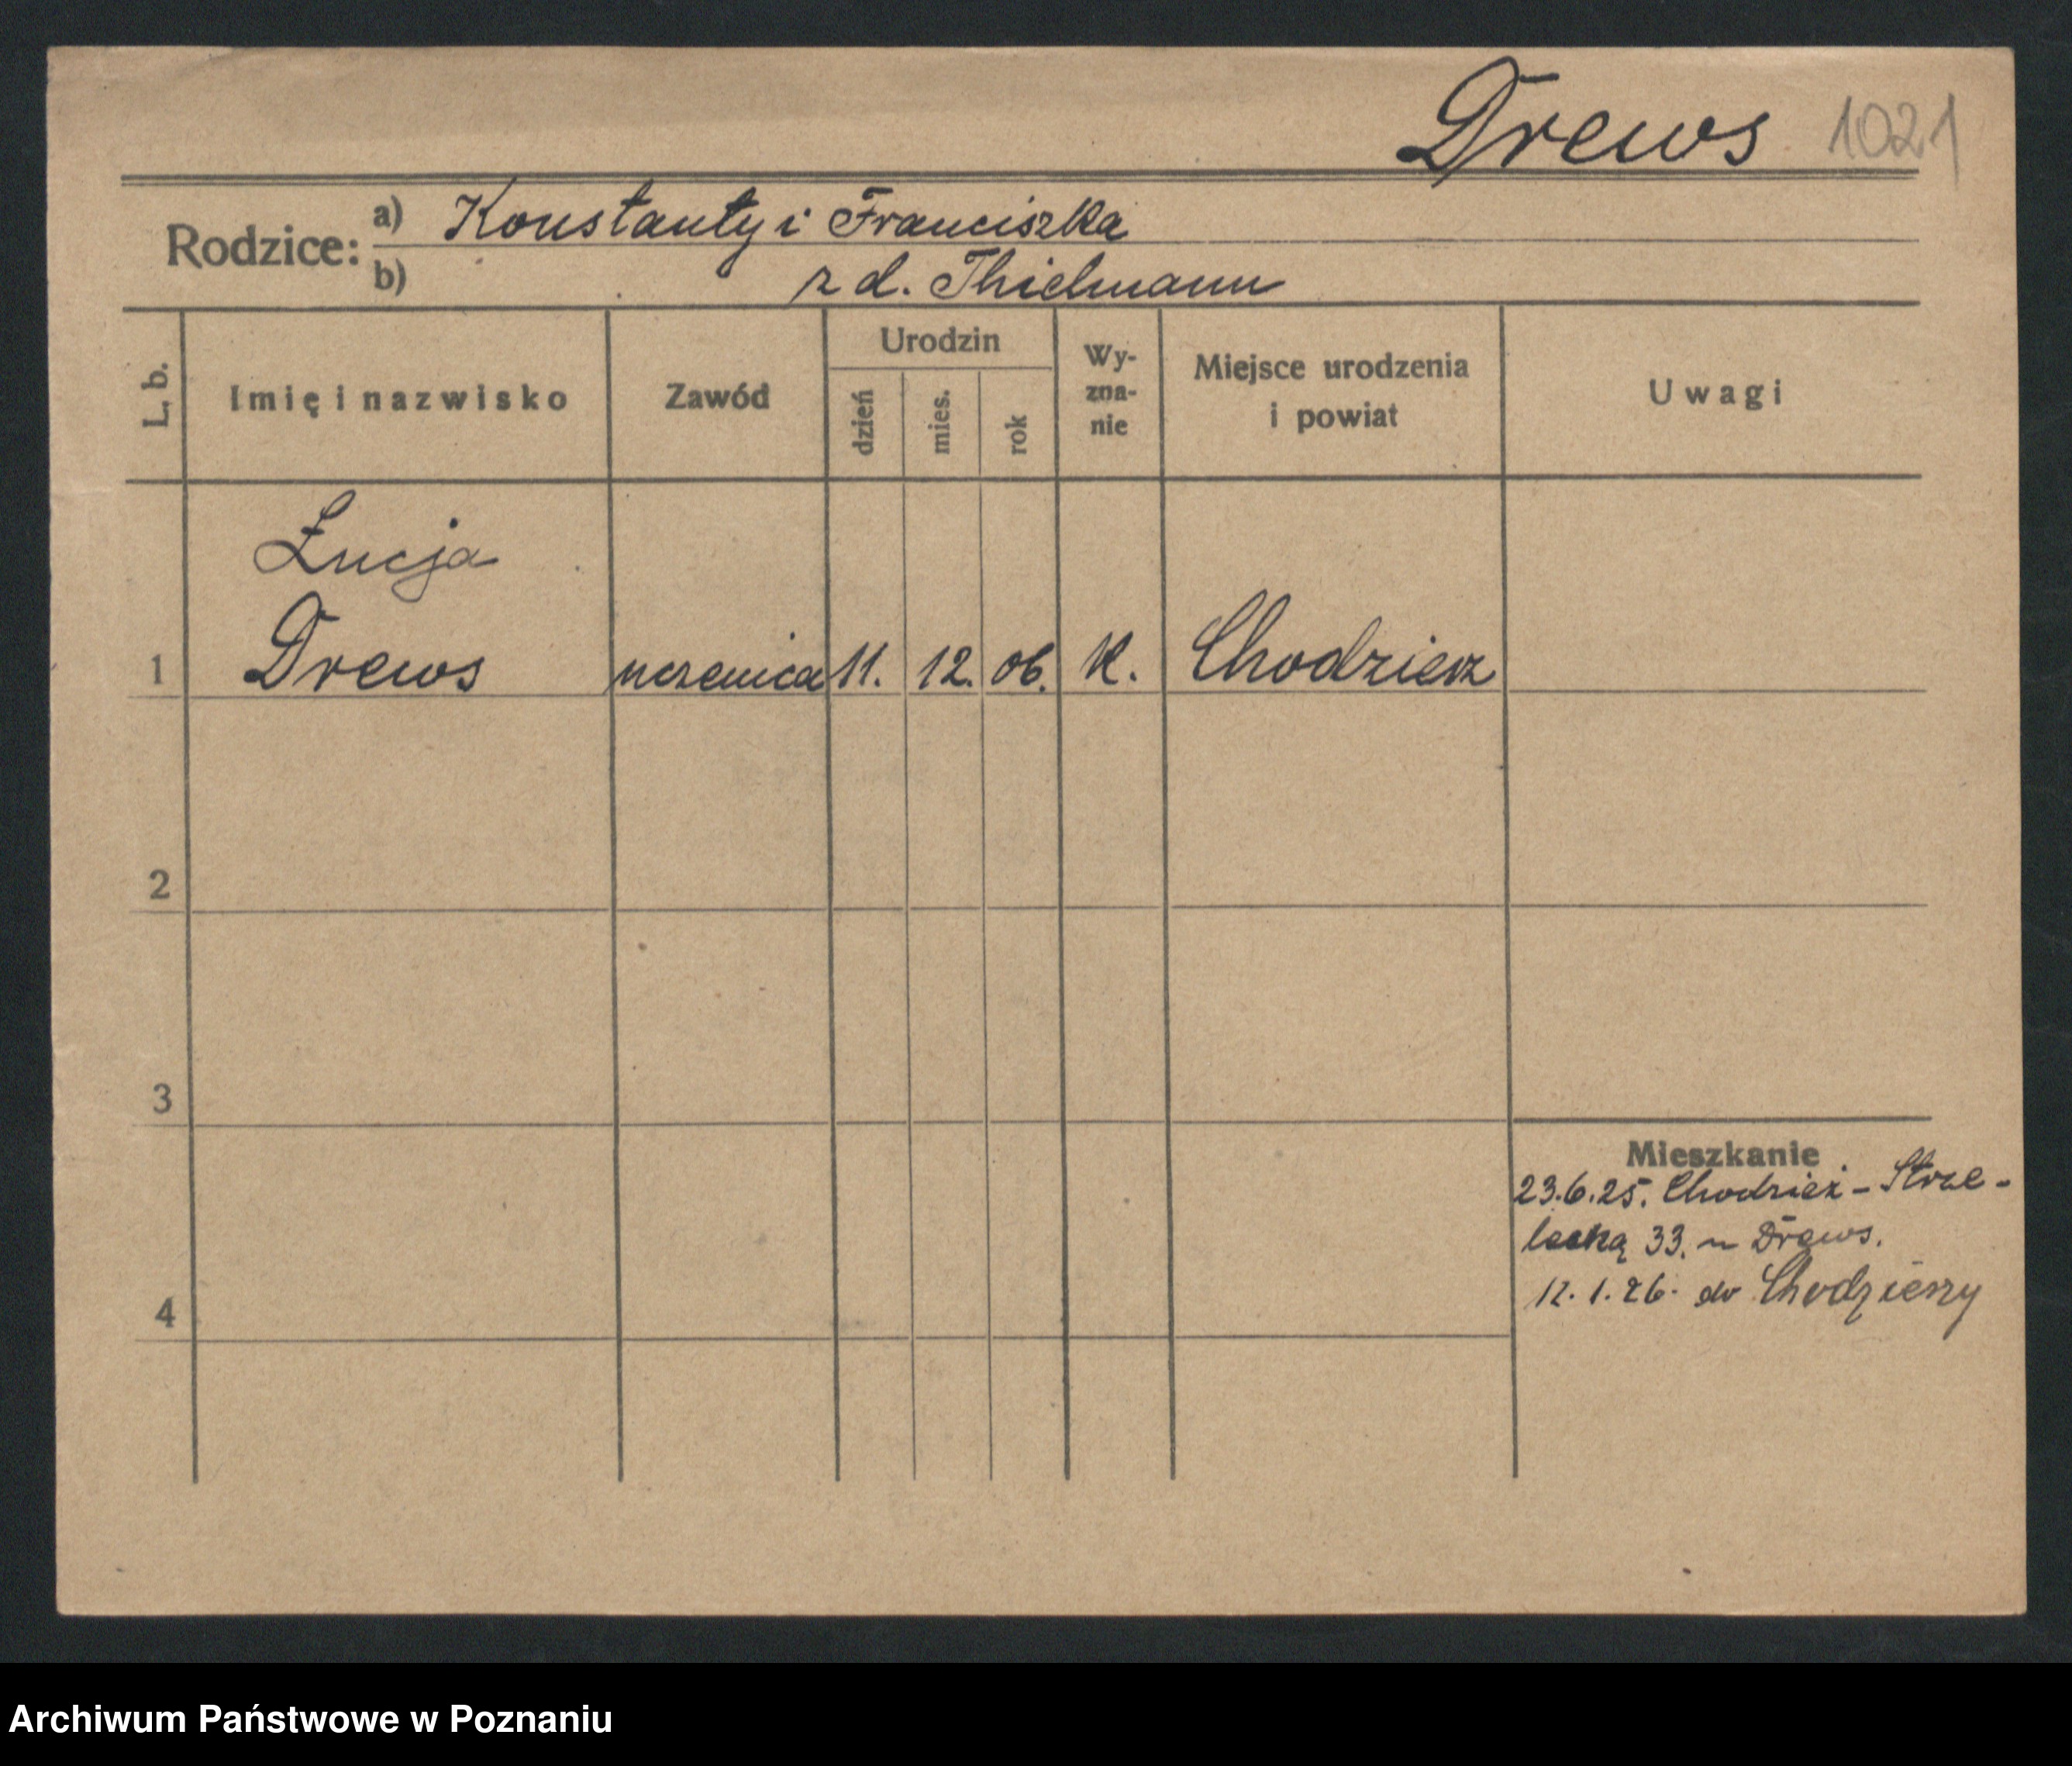 Drews 1021
Rodzice: a) Konstanty i Franciszka
b) z d. Thielmann
L. b. Imię i nazwisko Zawód Urodzin dzień mies. rok Wy-zna-nie Miejsce urodzenia i powiat Uwagi
Łucja
1 Drews uczenica 11. 12. 06. K. Chodzież
2
3
Mieszkanie
23.6.25. Chodzież - Strze-
lecką 33. u Drews.
4 12.1.26. do Chodzieży
Archiwum Państwowe w Poznaniu